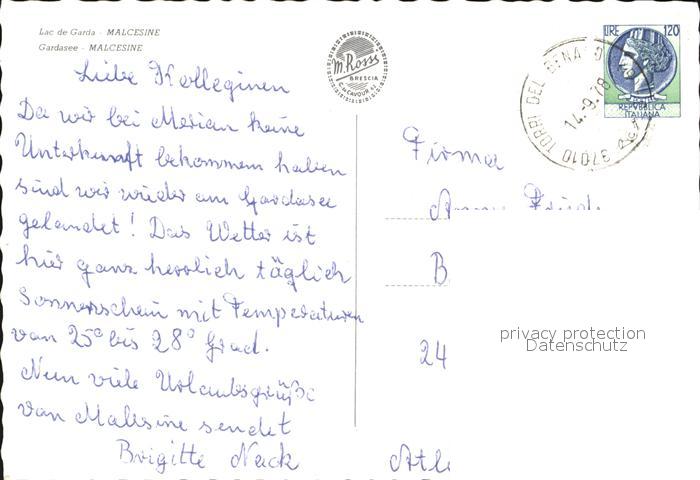 Lac de Garda - MALCESINE
Gardasee - MALCESINE
m. Rossi
BRESCIA
C. so CAVOUR 42
LIRE 120
REPVBBLICA
ITALIANA
37010 TORRI DEL BENA
14.-9.78
Liebe Kolleginen
Da wir bei Meran keine
Unterkunft bekommen haben
sind wir wieder am Gardasee
gelandet! Das Wetter ist
hier ganz herrlich täglich
Sonnenschein mit Temperaturen
van 25° bis 28° Grad.
Nun viele Urlaubsgrüße
van Malesine sendet
Brigitte Nack
Firma
B
24
privacy protection
Datenschutz